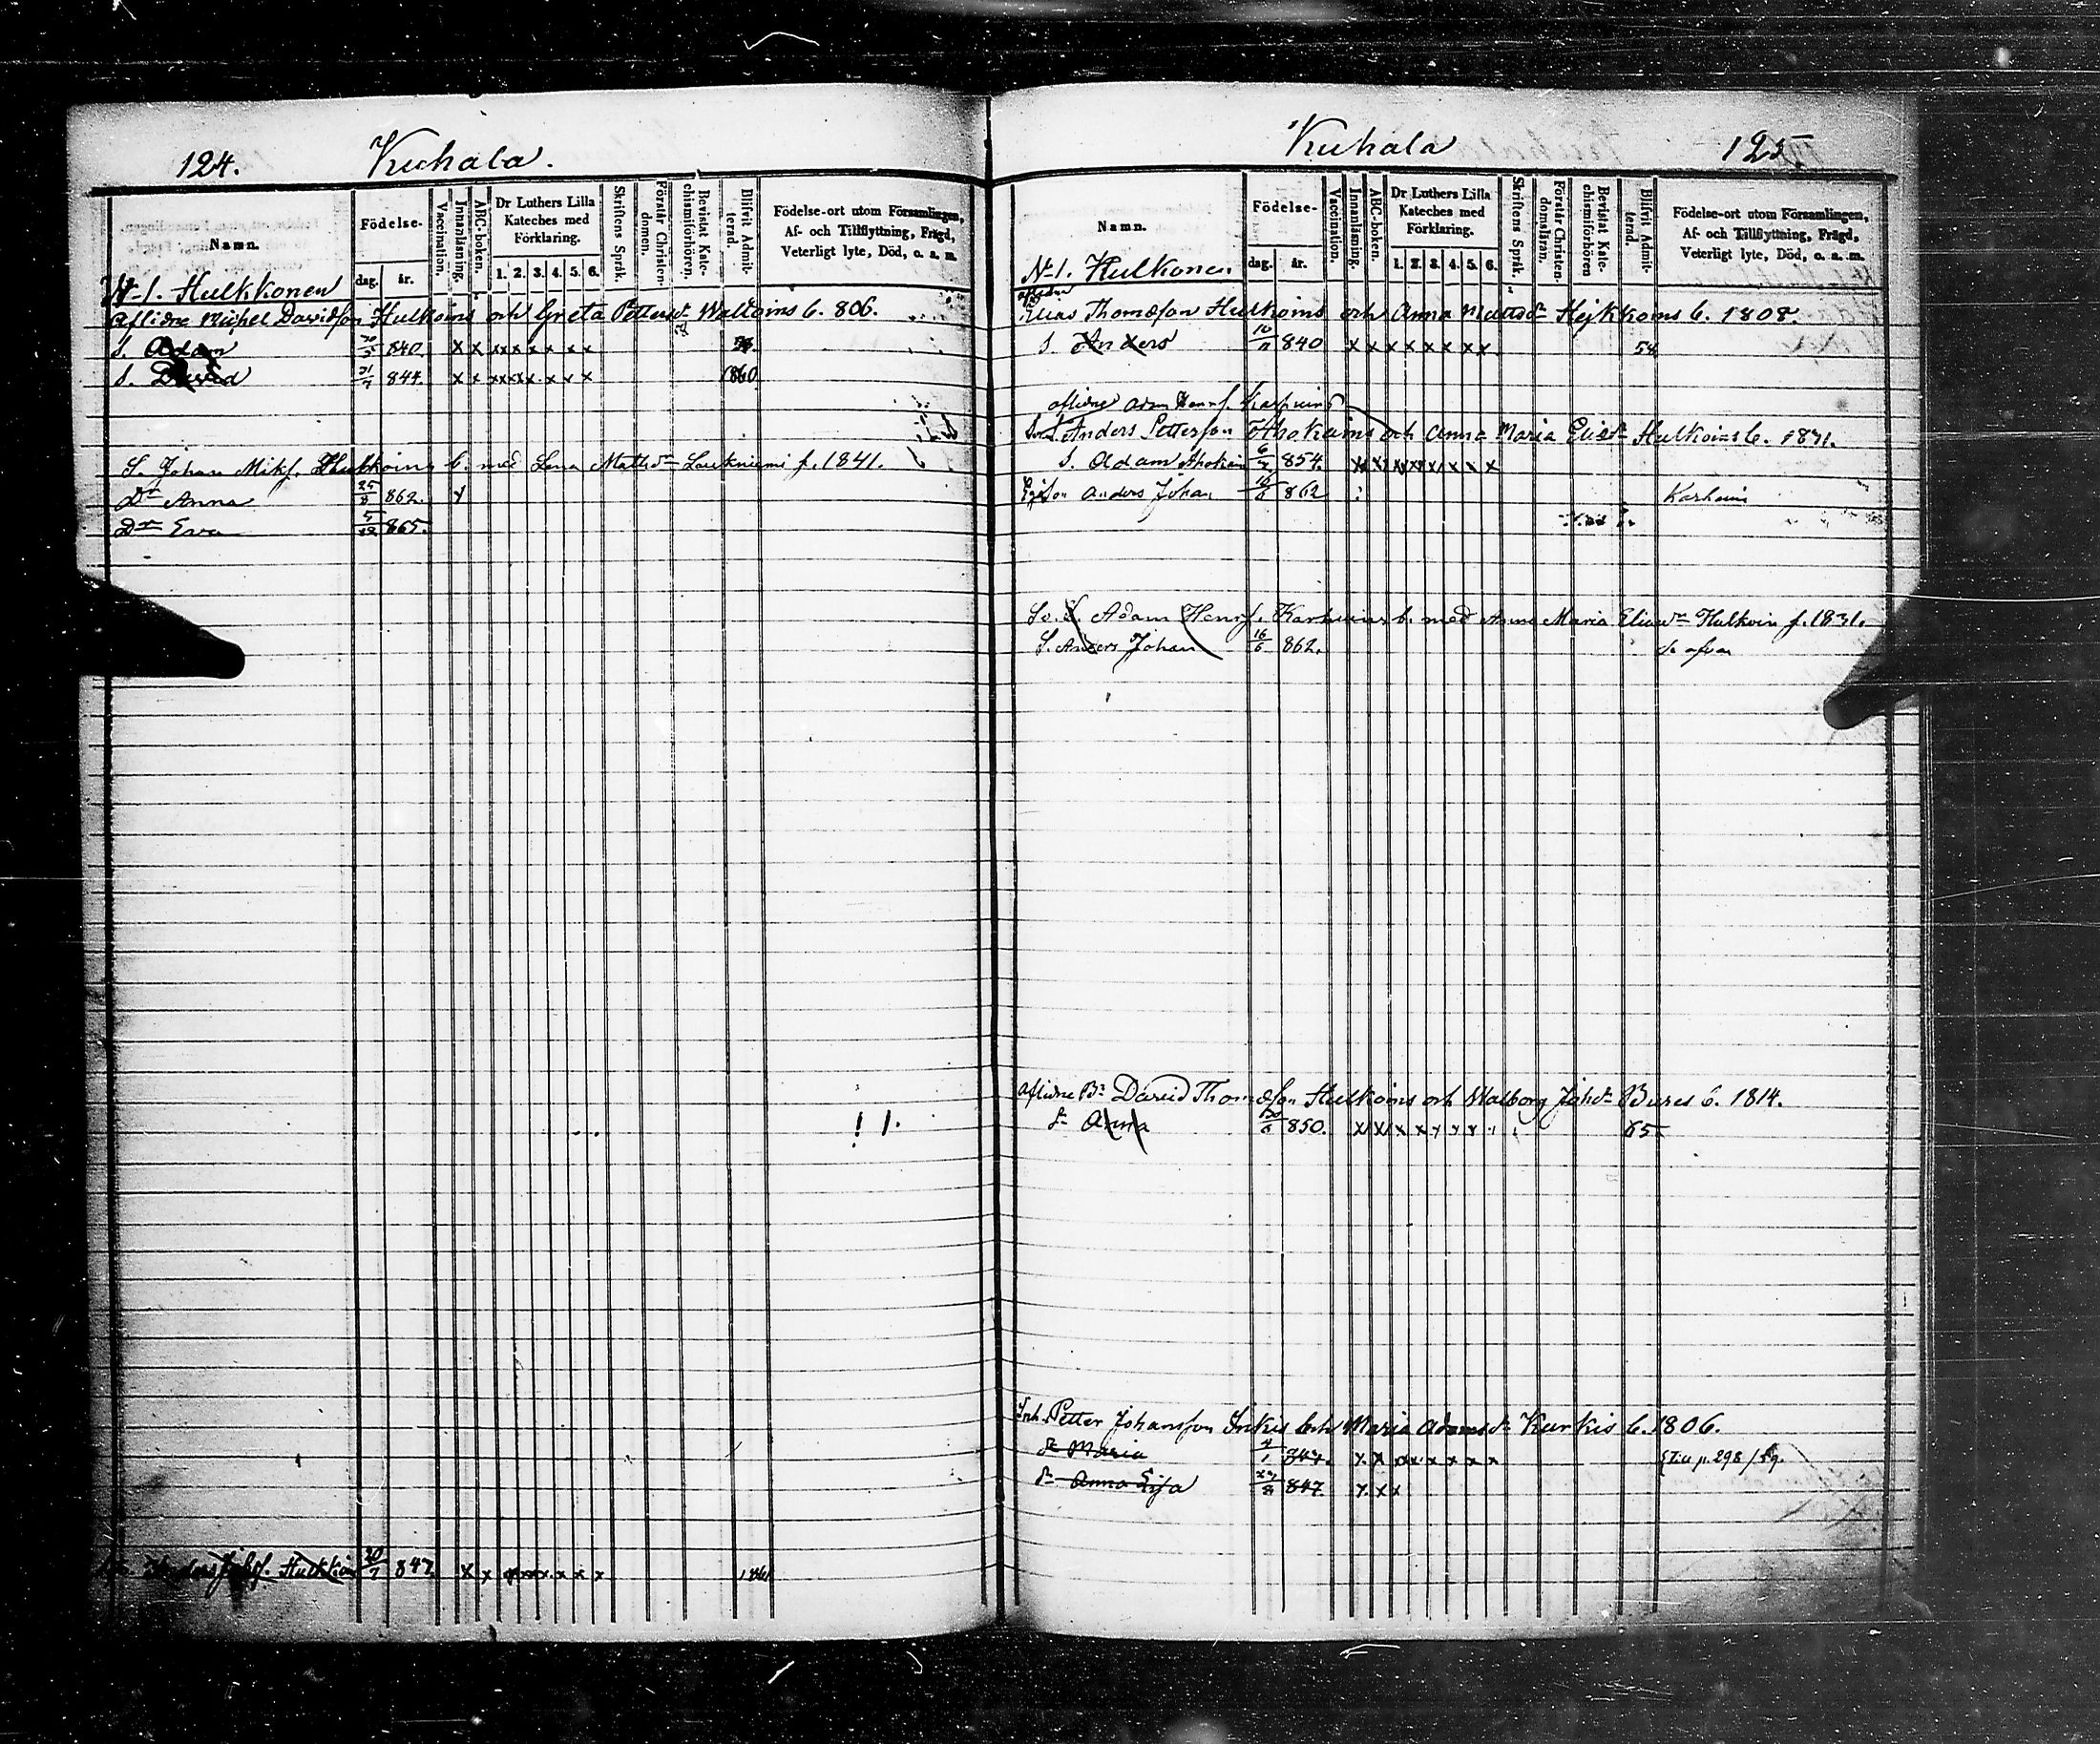 124. Kuhala.
Namn. Födelse- dag. år. Vaccination. Innanläsning. ABC-boken. Dr Luthers Lilla Kateches med Förklaring. 1. 2. 3. 4. 5. 6. Skriftens Språk. Förstår Christendomen. Bevistat Katechismiförhören. Blifvit Admitterad. Födelse-ort utom Församlingen, Af- och Tillflyttning, Frägd, Veterligt lyte, Död, o. s. m.
N-1. Hulkkonen
Aflidne Michel Davidson Hulkoins och Greta Pettersdr Waltoins b. 806.
S. Adam 840 x x x x x x x x
S. David 21/7 844. x x x x x x x x 1860
S. Johan Mikf. Hulkoins b. med Lena Mathsdr Laukniemi f. 1841.
Dr Anna 25/8 862. x
Dr Eva 5/12 865.
Anders Johsf. Hulkkoin 20/7 847 x x x x x x x x
Kuhala 125
Namn. Födelse- dag. år. Vaccination. Innanläsning. ABC-boken. Dr Luthers Lilla Kateches med Förklaring. 1. 2. 3. 4. 5. 6. Skriftens Språk. Förstår Christendomsläran. Bevistat Katechismiförhören Blifvit Admitterad. Födelse-ort utom Församlingen, Af- och Tillflyttning, Frägd, Veterligt lyte, Död, o. s. m.
N-1. Hulkonen
aflidne
Elias Thomasson Hulkoins och Anna Mattsdr Hejkkoins b. 1808.
S. Anders 10/11 840 x x x x x x x x 58
aflidne Adam Henrsf. Karhuins
Anders Petterson Ahokains och Anna Maria Eliasdr Hulkoins b. 1831.
S. Adam Ahokain 854. x x x x x x x x
Anders Johan 16/6 862 Karhuin
Adam Henrsf. Karhuins b. med Anna Maria Eliasdr Hulkoin f. 1831.
S. Anders Johan 16/6 862. Se ofvan
Aflidne Br David Thomasson Hulkoins och Walborg Johdr Bures b. 1814.
Dr Anna 850. x x x x x x x 65
Inh. Petter Johansson Inkis och Maria Adamsdr Kurkis b. 1806.
Dr Maria 844. x x x x x x x x p. 298
Dr Anna Lisa 847. x x x